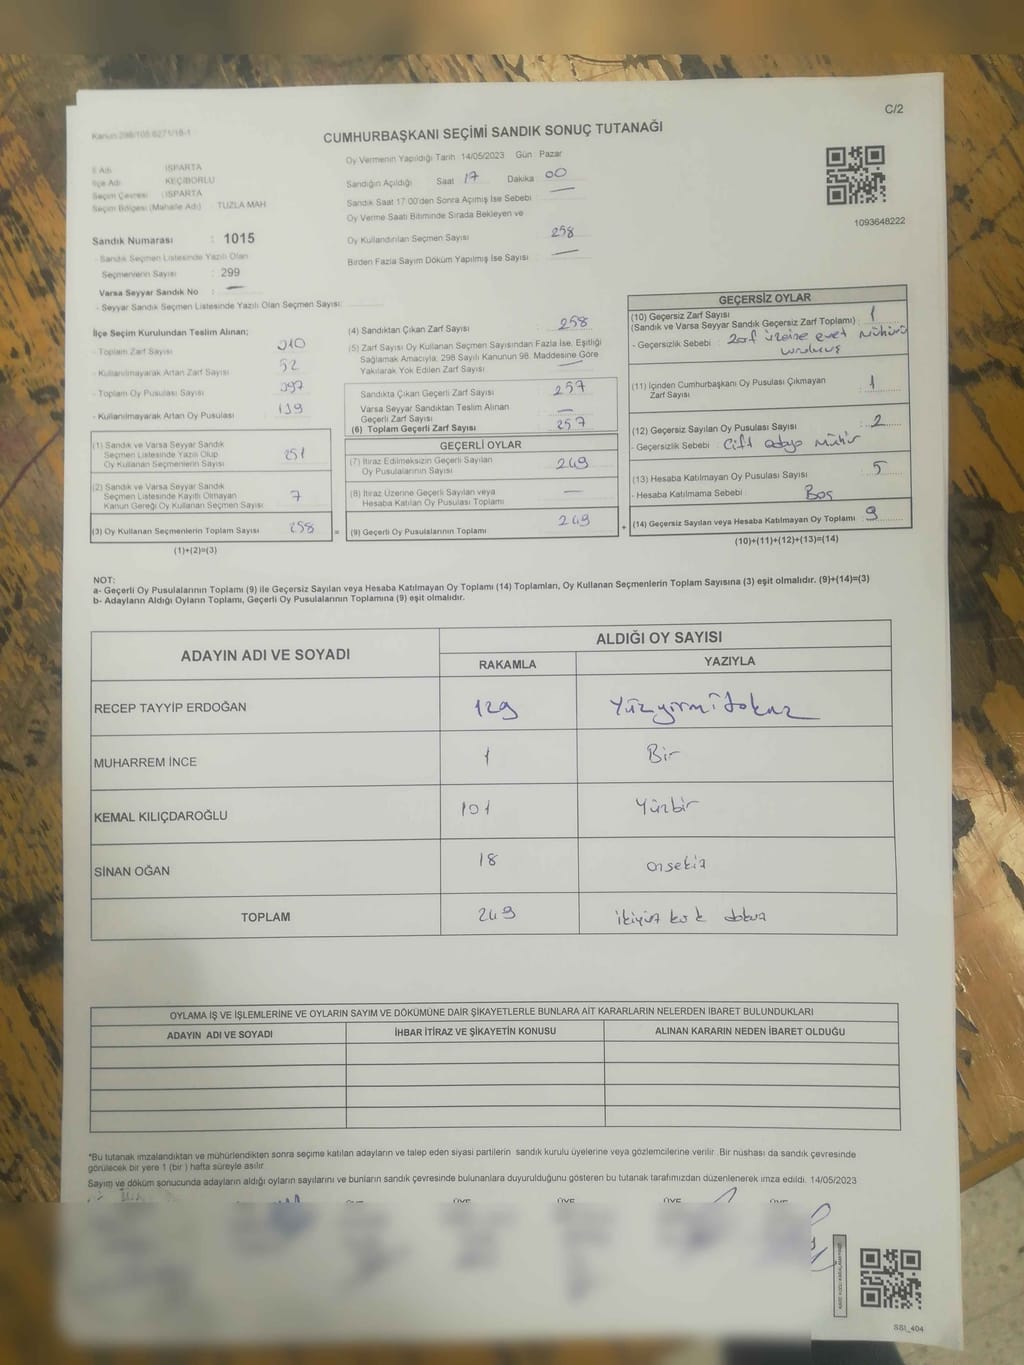 C/2
Kanun 298/105 6271/18-1
CUMHURBAŞKANI SEÇİMİ SANDIK SONUÇ TUTANAĞI
İl Adı : ISPARTA
İlçe Adı : KEÇİBORLU
Seçim Çevresi : ISPARTA
Seçim Bölgesi (Mahalle Adı) : TUZLA MAH
Sandık Numarası : 1015
- Sandık Seçmen Listesinde Yazılı Olan
Seçmenlerin Sayısı : 299
Varsa Seyyar Sandık No : —
- Seyyar Sandık Seçmen Listesinde Yazılı Olan Seçmen Sayısı:
Oy Vermenin Yapıldığı Tarih 14/05/2023 Gün Pazar
Sandığın Açıldığı Saat 17 Dakika 00
Sandık Saat 17:00'den Sonra Açılmış İse Sebebi —
Oy Verme Saati Bitiminde Sırada Bekleyen ve
Oy Kullandırılan Seçmen Sayısı 258
Birden Fazla Sayım Döküm Yapılmış İse Sayısı —
1093648222
İlçe Seçim Kurulundan Teslim Alınan;
- Toplam Zarf Sayısı 310
- Kullanılmayarak Artan Zarf Sayısı 52
- Toplam Oy Pusulası Sayısı 397
- Kullanılmayarak Artan Oy Pusulası 139
(1) Sandık ve Varsa Seyyar Sandık
Seçmen Listesinde Yazılı Olup
Oy Kullanan Seçmenlerin Sayısı 251
(2) Sandık ve Varsa Seyyar Sandık
Seçmen Listesinde Kayıtlı Olmayan
Kanun Gereği Oy Kullanan Seçmen Sayısı 7
(3) Oy Kullanan Seçmenlerin Toplam Sayısı 258 =
(1)+(2)=(3)
(4) Sandıktan Çıkan Zarf Sayısı 258
(5) Zarf Sayısı Oy Kullanan Seçmen Sayısından Fazla İse, Eşitliği
Sağlamak Amacıyla, 298 Sayılı Kanunun 98. Maddesine Göre
Yakılarak Yok Edilen Zarf Sayısı —
Sandıkta Çıkan Geçerli Zarf Sayısı 257
Varsa Seyyar Sandıktan Teslim Alınan
Geçerli Zarf Sayısı —
(6) Toplam Geçerli Zarf Sayısı 257
GEÇERLİ OYLAR
(7) İtiraz Edilmeksizin Geçerli Sayılan
Oy Pusulalarının Sayısı 249
(8) İtiraz Üzerine Geçerli Sayılan veya
Hesaba Katılan Oy Pusulası Toplamı —
(9) Geçerli Oy Pusulalarının Toplamı 249 +
GEÇERSİZ OYLAR
(10) Geçersiz Zarf Sayısı
(Sandık ve Varsa Seyyar Sandık Geçersiz Zarf Toplamı) 1
- Geçersizlik Sebebi : Zarf üzerine evet mühürü
vurulmuş
(11) İçinden Cumhurbaşkanı Oy Pusulası Çıkmayan
Zarf Sayısı 1
(12) Geçersiz Sayılan Oy Pusulası Sayısı 2
- Geçersizlik Sebebi Çift aday Mühür
(13) Hesaba Katılmayan Oy Pusulası Sayısı 5
- Hesaba Katılmama Sebebi : Boş
(14) Geçersiz Sayılan veya Hesaba Katılmayan Oy Toplamı 9
(10)+(11)+(12)+(13)=(14)
NOT:
a- Geçerli Oy Pusulalarının Toplamı (9) ile Geçersiz Sayılan veya Hesaba Katılmayan Oy Toplamı (14) Toplamları, Oy Kullanan Seçmenlerin Toplam Sayısına (3) eşit olmalıdır. (9)+(14)=(3)
b- Adayların Aldığı Oyların Toplamı, Geçerli Oy Pusulalarının Toplamına (9) eşit olmalıdır.
ADAYIN ADI VE SOYADI
ALDIĞI OY SAYISI
RAKAMLA YAZIYLA
RECEP TAYYİP ERDOĞAN 129 Yüzyirmidokuz
MUHARREM İNCE 1 Bir
KEMAL KILIÇDAROĞLU 101 Yüzbir
SİNAN OĞAN 18 onsekiz
TOPLAM 249 ikiyüz kırk dokuz
OYLAMA İŞ VE İŞLEMLERİNE VE OYLARIN SAYIM VE DÖKÜMÜNE DAİR ŞİKAYETLERLE BUNLARA AİT KARARLARIN NELERDEN İBARET BULUNDUKLARI
ADAYIN ADI VE SOYADI İHBAR İTİRAZ VE ŞİKAYETİN KONUSU ALINAN KARARIN NEDEN İBARET OLDUĞU
*Bu tutanak imzalandıktan ve mühürlendikten sonra seçime katılan adayların ve talep eden siyasi partilerin sandık kurulu üyelerine veya gözlemcilerine verilir. Bir nüshası da sandık çevresinde
görülecek bir yere 1 (bir) hafta süreyle asılır.
Sayım ve döküm sonucunda adayların aldığı oyların sayılarını ve bunların sandık çevresinde bulunanlara duyurulduğunu gösteren bu tutanak tarafımızdan düzenlenerek imza edildi. 14/05/2023
ÜYE ÜYE ÜYE ÜYE ÜYE
SSI_404